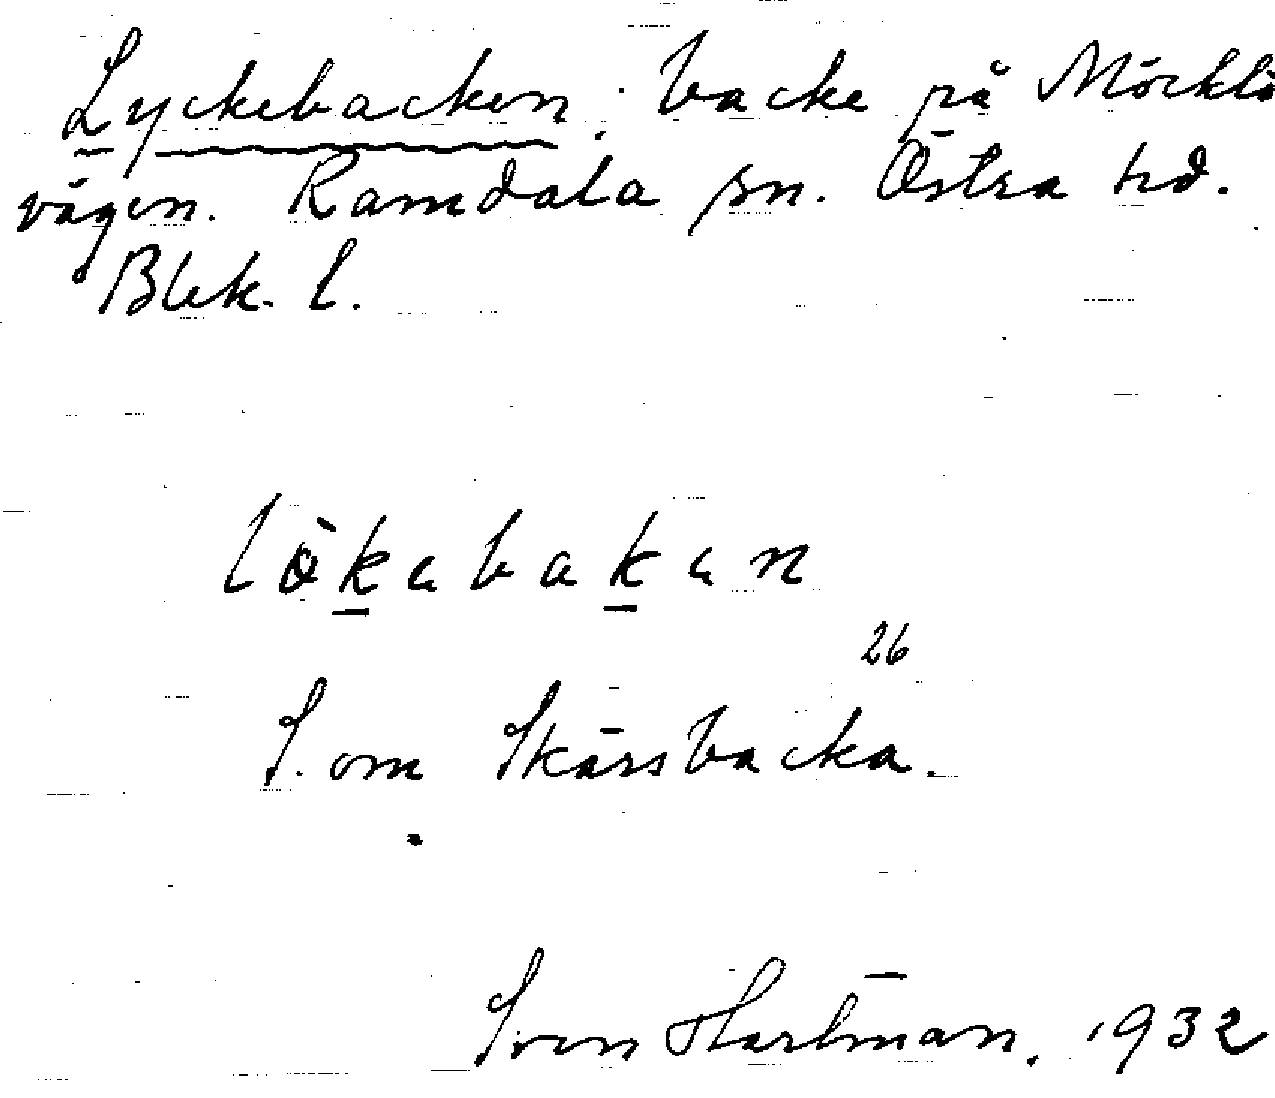 Lyckebacken: backe på Möcklö
vägen. Ramdala sn. Östra hd.
Blek. l.
lökabakan
26
S. om Skärsbacka.
Sven Hartman. 1932